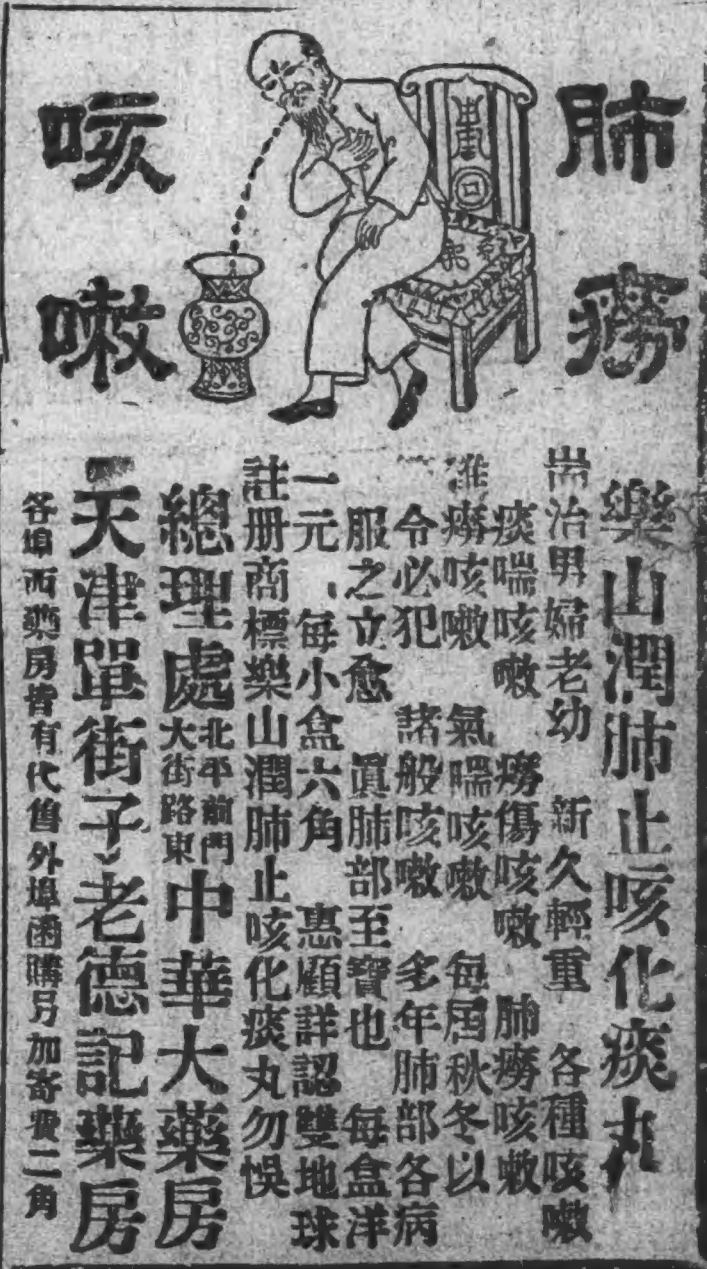 肺癆
咳嗽
樂山潤肺止咳化痰丸
耑治男婦老幼 新久輕重 各種咳嗽
痰喘咳嗽 癆傷咳嗽 肺癆咳嗽
癆咳嗽 氣喘咳嗽 每屆秋冬以
令必犯 諸般咳嗽 多年肺部各病
服之立愈 眞肺部至寶也 每盒洋
一元 、每小盒六角 惠顧詳認雙地球
註册商標樂山潤肺止咳化痰丸勿悞
總理處 北平前門大街路東 中華大藥房
天津單街子老德記藥房
各埠西藥房皆有代售外埠函購另加寄費二角